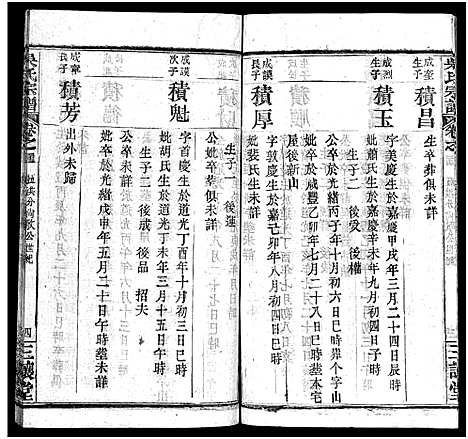 成奎子
積昌
生卒葬俱未詳
成烈子
積玉
字美慶生於嘉慶甲戌年三月二十四日辰時
妣蕭氏生於嘉慶辛未年九月初四日子時
生子二 後爱 後權
成謨長子
積厚
公卒於光緒丙子年十月初六日巳時葬个字山
妣卒於咸豐乙卯年七月二十八日巳時塟本宅
屋後新山
字敦慶生於嘉慶己卯年八月初三日
妣裴氏生卒未詳
公妣卒葵俱未詳
生子一 後蓮
成謨次子
積魁
生於道光丁酉年十月初三日巳時
妣胡氏生於道光丁未年三月十五日午時
生子二 後成 後品 招夫
公卒未詳
妣卒於光緒戊申年五月二十日午時塟未詳
成寧長子
積芳
出外未歸
吳氏宗譜
四
三讓堂